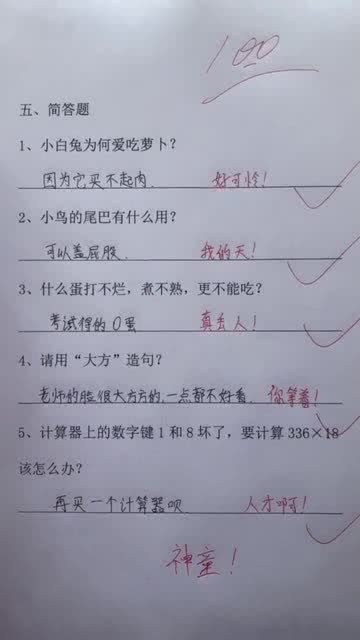 100
五、简答题
1、小白兔为何爱吃萝卜?
因为它买不起肉. 好可怜!
2、小鸟的尾巴有什么用?
可以盖屁股. 我的天!
3、什么蛋打不烂，煮不熟，更不能吃?
考试得的0蛋 真丢人!
4、请用“大方”造句?
老师的脸很大方方的,一点都不好看. 你拿着!
5、计算器上的数字键1和8坏了，要计算336×18
该怎么办?
再买一个计算器呗 人才啊!
神童!